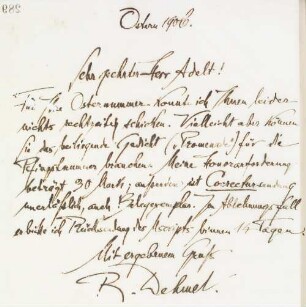 Ostern 1906.
Sehr geehrter Herr Adelt!
Für Ihre Osternummer konnt ich Ihnen leider
nichts rechtzeitig schicken. Vielleicht aber können
Sie das beiliegende Gedicht für die
Pfingstnummer brauchen. Meine Honorarforderung
beträgt 30 Mark; ausserdem ist Correctursendung
unerläßlich, auch Belegexemplar. Im Ablehnungsfall
erbitte ich Rücksendung des Mscripts binnen 14 Tagen!
Mit ergebenem Gruß
R. Dehmel.